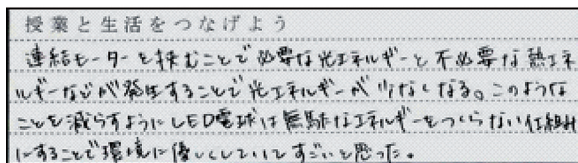 授業と生活をつなげよう
連結モーターを挟むことで必要な光エネルギーと不必要な熱エネ
ルギーなどが発生することで光エネルギーが少なくなる。このような
ことを減らすようにLED電球は無駄なエネルギーをつくらない仕組み
にすることで環境に優しくしていてすごいと思った。